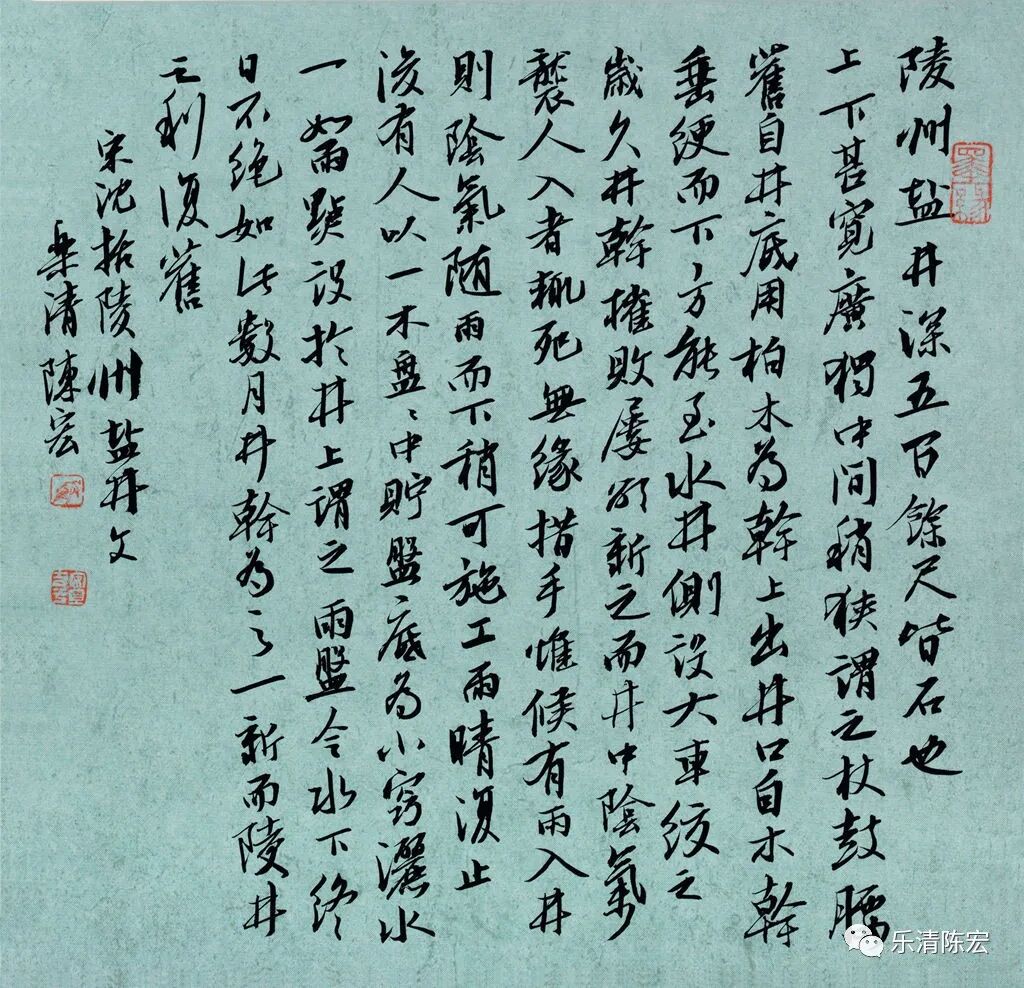 陵州盐井深五百餘尺皆石也
上下甚寬廣獨中间稍狹謂之杖鼓腰
舊自井底用柏木為幹上出井口自木幹
垂綆而下方能至水井側設大車絞之
歲久井幹摧敗屢欲新之而井中陰氣
襲人入者輒死無緣措手惟候有雨入井
則陰氣随雨而下稍可施工雨晴復止
後有人以一木盘〻中貯盤底為小竅灑水
一如雨點設於井上謂之雨盤令水下终
日不絶如此數月井幹為之一新而陵井
之利復舊
宋沈括陵州盐井文
樂清陳宏
乐清陈宏